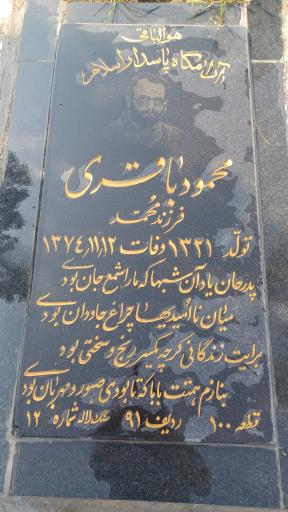 هوالباقی
آرامگاه پاسدار اسلام
محمود باقری
فرزند محمد
تولد ۱۳۲۱ وفات ۱۳۷۴/۱۱/۱۲
پدرجان یاد آن شبها که ما را شمع جان بودی
میان ناامیدیها چراغ جاودان بودی
برایت زندگانی گرچه یکسر رنج و سختی بود
بنازم همتت بابا که تا بودی صبور و مهربان بودی
قطعه ۱۰۰ ردیف ۹۱ شماره ۱۲